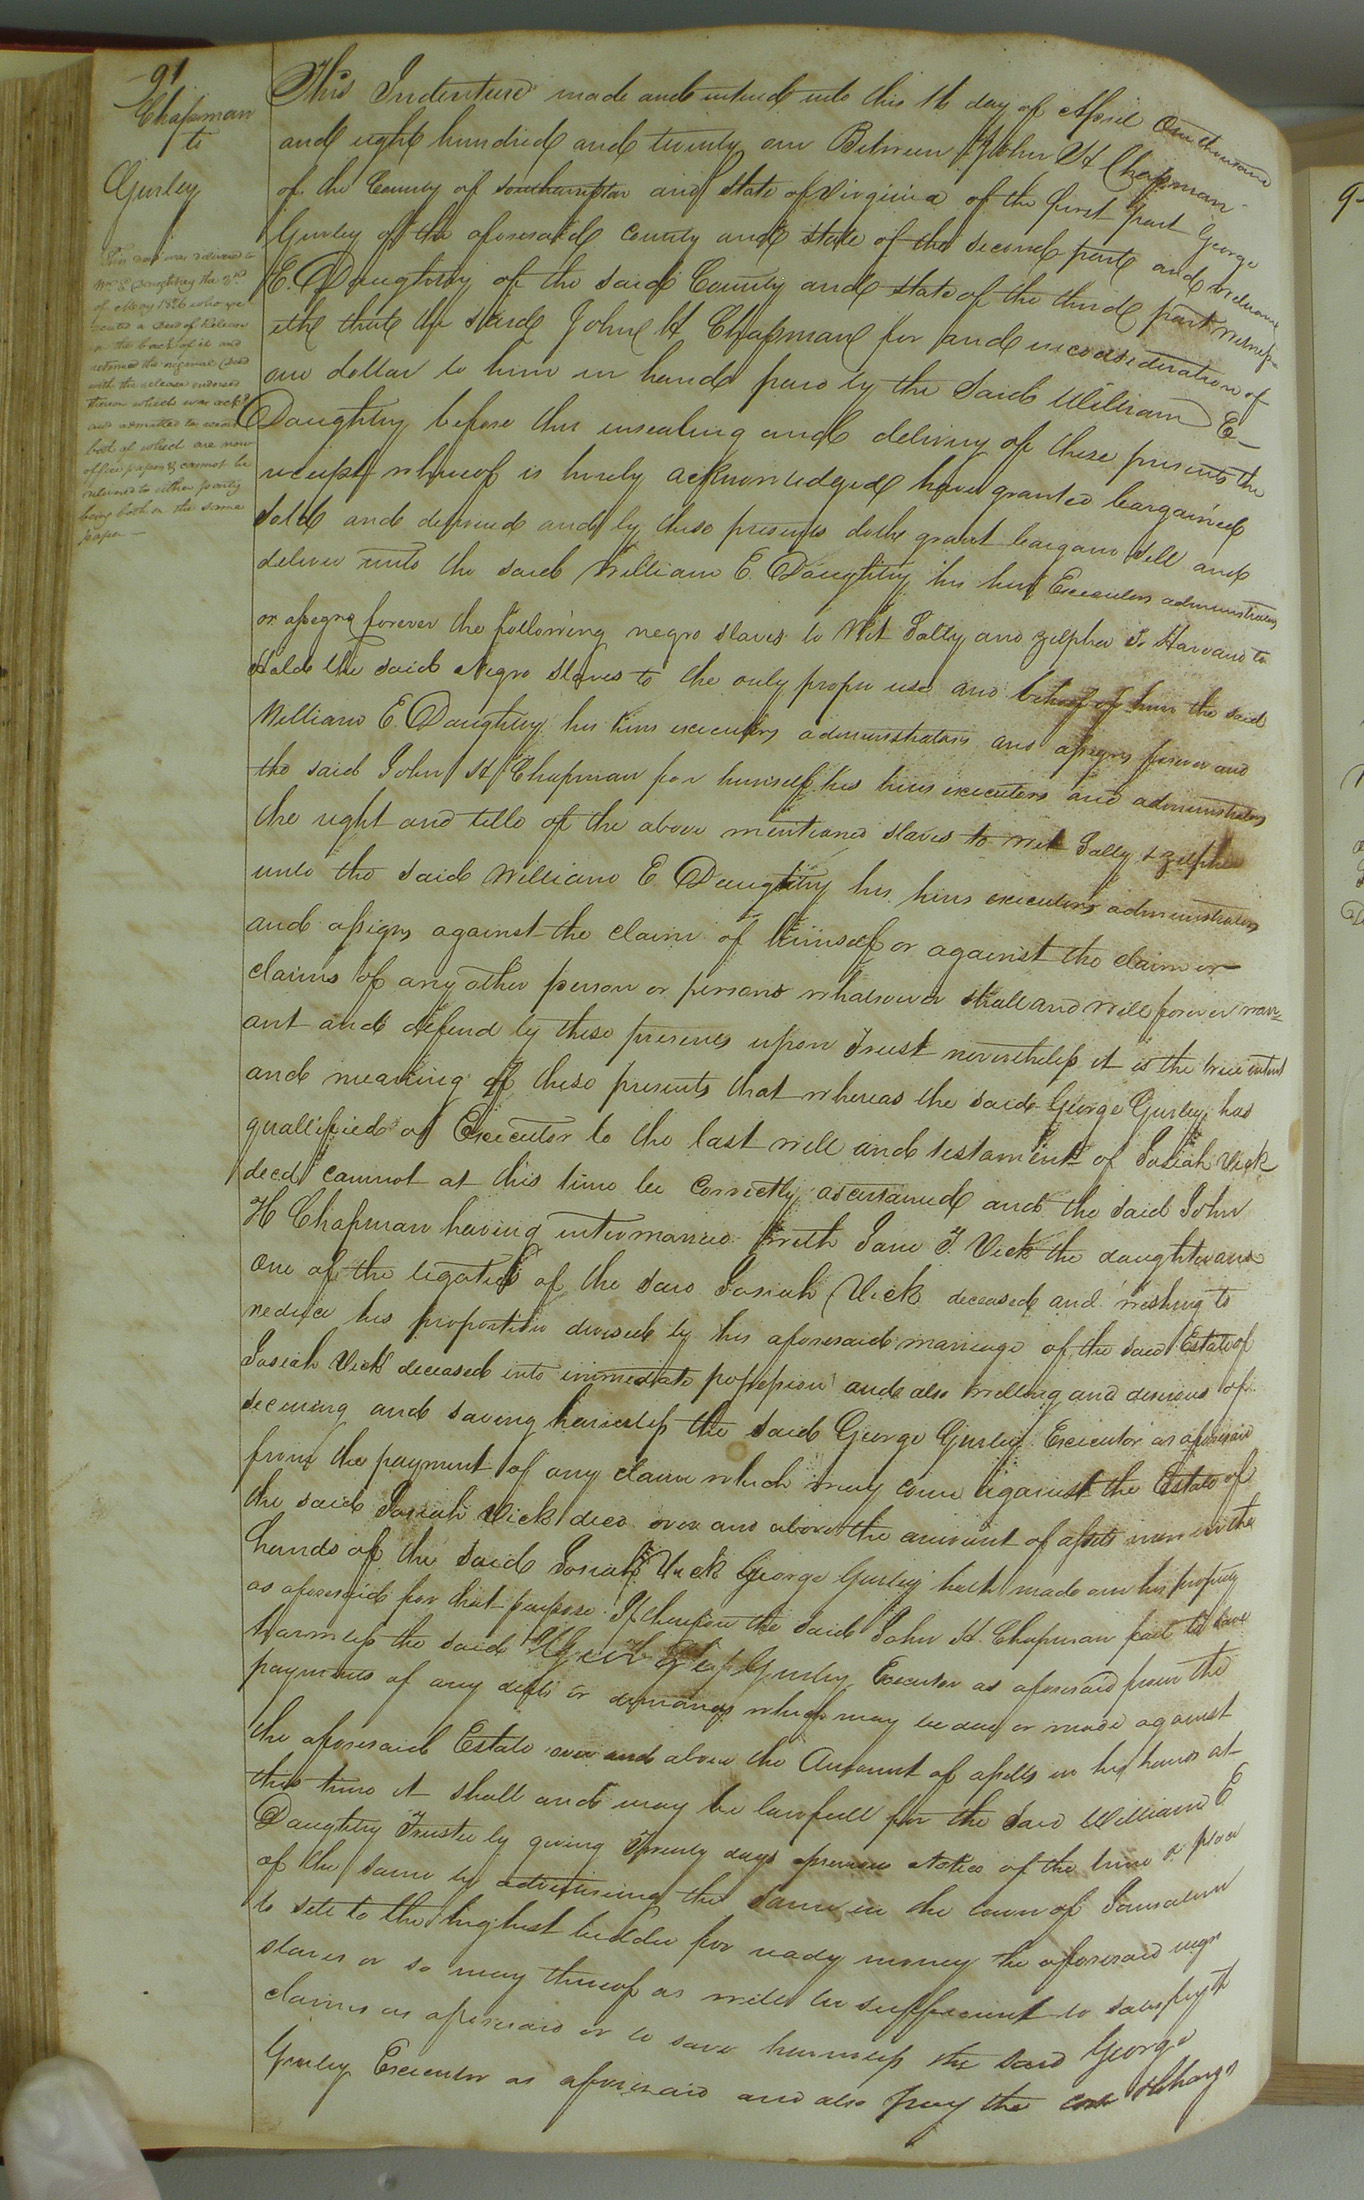 91
Chapman
to
Gurley
This deed was delivered to
Wm E Daughtrey the 2nd
of May 1826 who exe
cuted a deed of Release
on the back of it and
returned the original deed
with the release endorsed
thereon which was ackd
and admitted to record
both of which are now
office papers & cannot be
returned to either party
being both on the same
paper —
This Indenture made and entered into this 16 day of April One thousand
and eight hundred and twenty one Between John H Chapman
of the County of Southampton and State of Virginia of the first part George
Gurley of the aforesaid County and State of the second part and William
E. Daughtry of the said County and State of the third part Witnes-
eth that the said John H Chapman for and in consideration of
one dollar to him in hand paid by the said William E-
Daughtry before the ensealing and delivery of these presents the
receipt whereof is hereby acknowledged have granted bargained
sold and delivered and by these presents doth grant bargain sell and
deliver unto the said William E. Daughtry his heirs Executors administrators
or assigns forever the following negro slaves to Wit Sally and Zilpha To Have and to
Hold the said Negro Slaves to the only proper use and behoof of him the said
William E. Daughtry his heirs executors administrators and assigns forever and
the said John H Chapman for himself his heirs executors and administrators
the right and title of the above mentioned slaves to wit Sally & Zilpha
unto the said William E Daughtry his heirs executors administrators
and assigns against the claim of himself or against the claim or
claims of any other person or persons whatsoever shall and will forever warr=
ant and defend by these presents upon Trust nevertheless it is the true intent
and meaning of these presents that whereas the said George Gurley has
quallified as Executor to the last will and testament of Josiah Vick
decd cannot at this time be correctly ascertained and the said John
H Chapman having intermarried with Jane T. Vick the daughter and
one of the legatees of the said Josiah Vick deceased and wishing to
reduce his proportion divised by his aforesaid marriage of the said Estate of
Josiah Vick deceased into immediate possession and also willing and desirous of
securing and saving harmless the said George Gurley Executor as aforesaid
from the payment of any claim which may come against the Estate of
the said Josiah Vick decd over and above the amount of assets now in the
hands of the said Josiah Vick George Gurley hath made over his property
as aforesaid for that purpose. If therefore the said John H. Chapman fail to save
harmless the said Gurley Executor as aforesaid from the
payments of any debts or demands which may be due or made against
the aforesaid Estate over and above the Amount of assets in his hands at
this time it shall and may be lawfull for the said William E
Daughtry Trustee by giving Twenty days previous Notice of the time & place
of the same by advertising the same in the town of Jerusalem
to sell to the highest bidder for ready money the aforesaid negro
slaves or so many thereof as will be sufficient to satisfy the
claims as aforesaid or to save harmless the said George
Gurley Executor as aforesaid and also pay the cost & charges